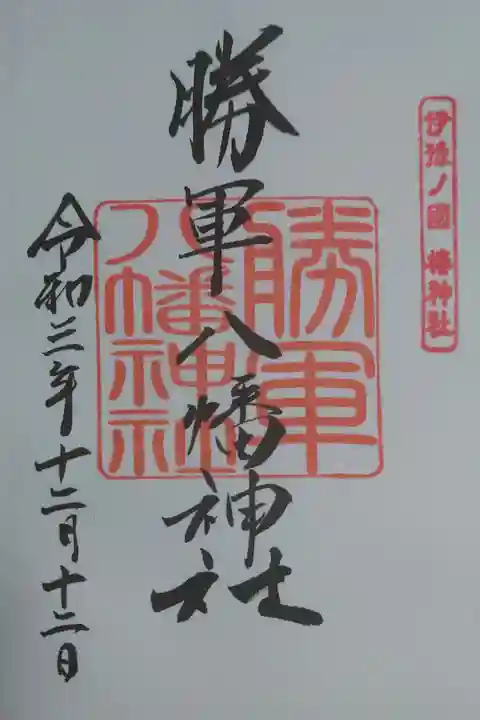 伊豫ノ國 椿神社
勝軍八幡神社
勝軍
八幡神社
令和三年十二月十二日